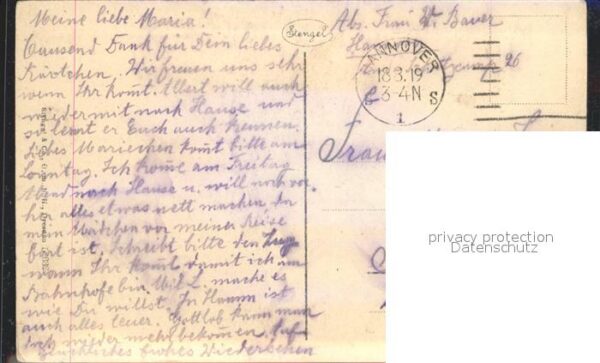 Meine liebe Maria!
Tausend Dank für Dein liebes
Kärtchen. Wir freuen uns sehr
wenn Ihr kommt. Albert will auch
wieder mit nach Hause und
so lernt er Euch auch kennen.
Liebes Mariechen kommt bitte am
Sonntag. Ich komme am Freitag
Abend nach Hause u. will noch vor-
her alles etwas nett machen da
mein Mädchen vor meiner Reise
fort ist. Schreibt bitte den Zug
wann Ihr kommt damit ich am
Bahnhofe bin. Mache es
wie Du willst. In Hamm ist
auch alles teuer. Gottlob kann man
doch wieder mehr bekommen. Auf
frohes Wiedersehen
Stengel
Abs. Frau W. Bauer
26
HANNOVER
18.3.19
3-4N
S
1
Frau
privacy protection
Datenschutz